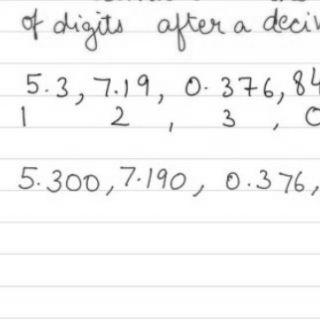 of digits after a
5.3, 7.19, 0.376, 84
1 2 , 3 , 0
5.300, 7.190, 0.376,